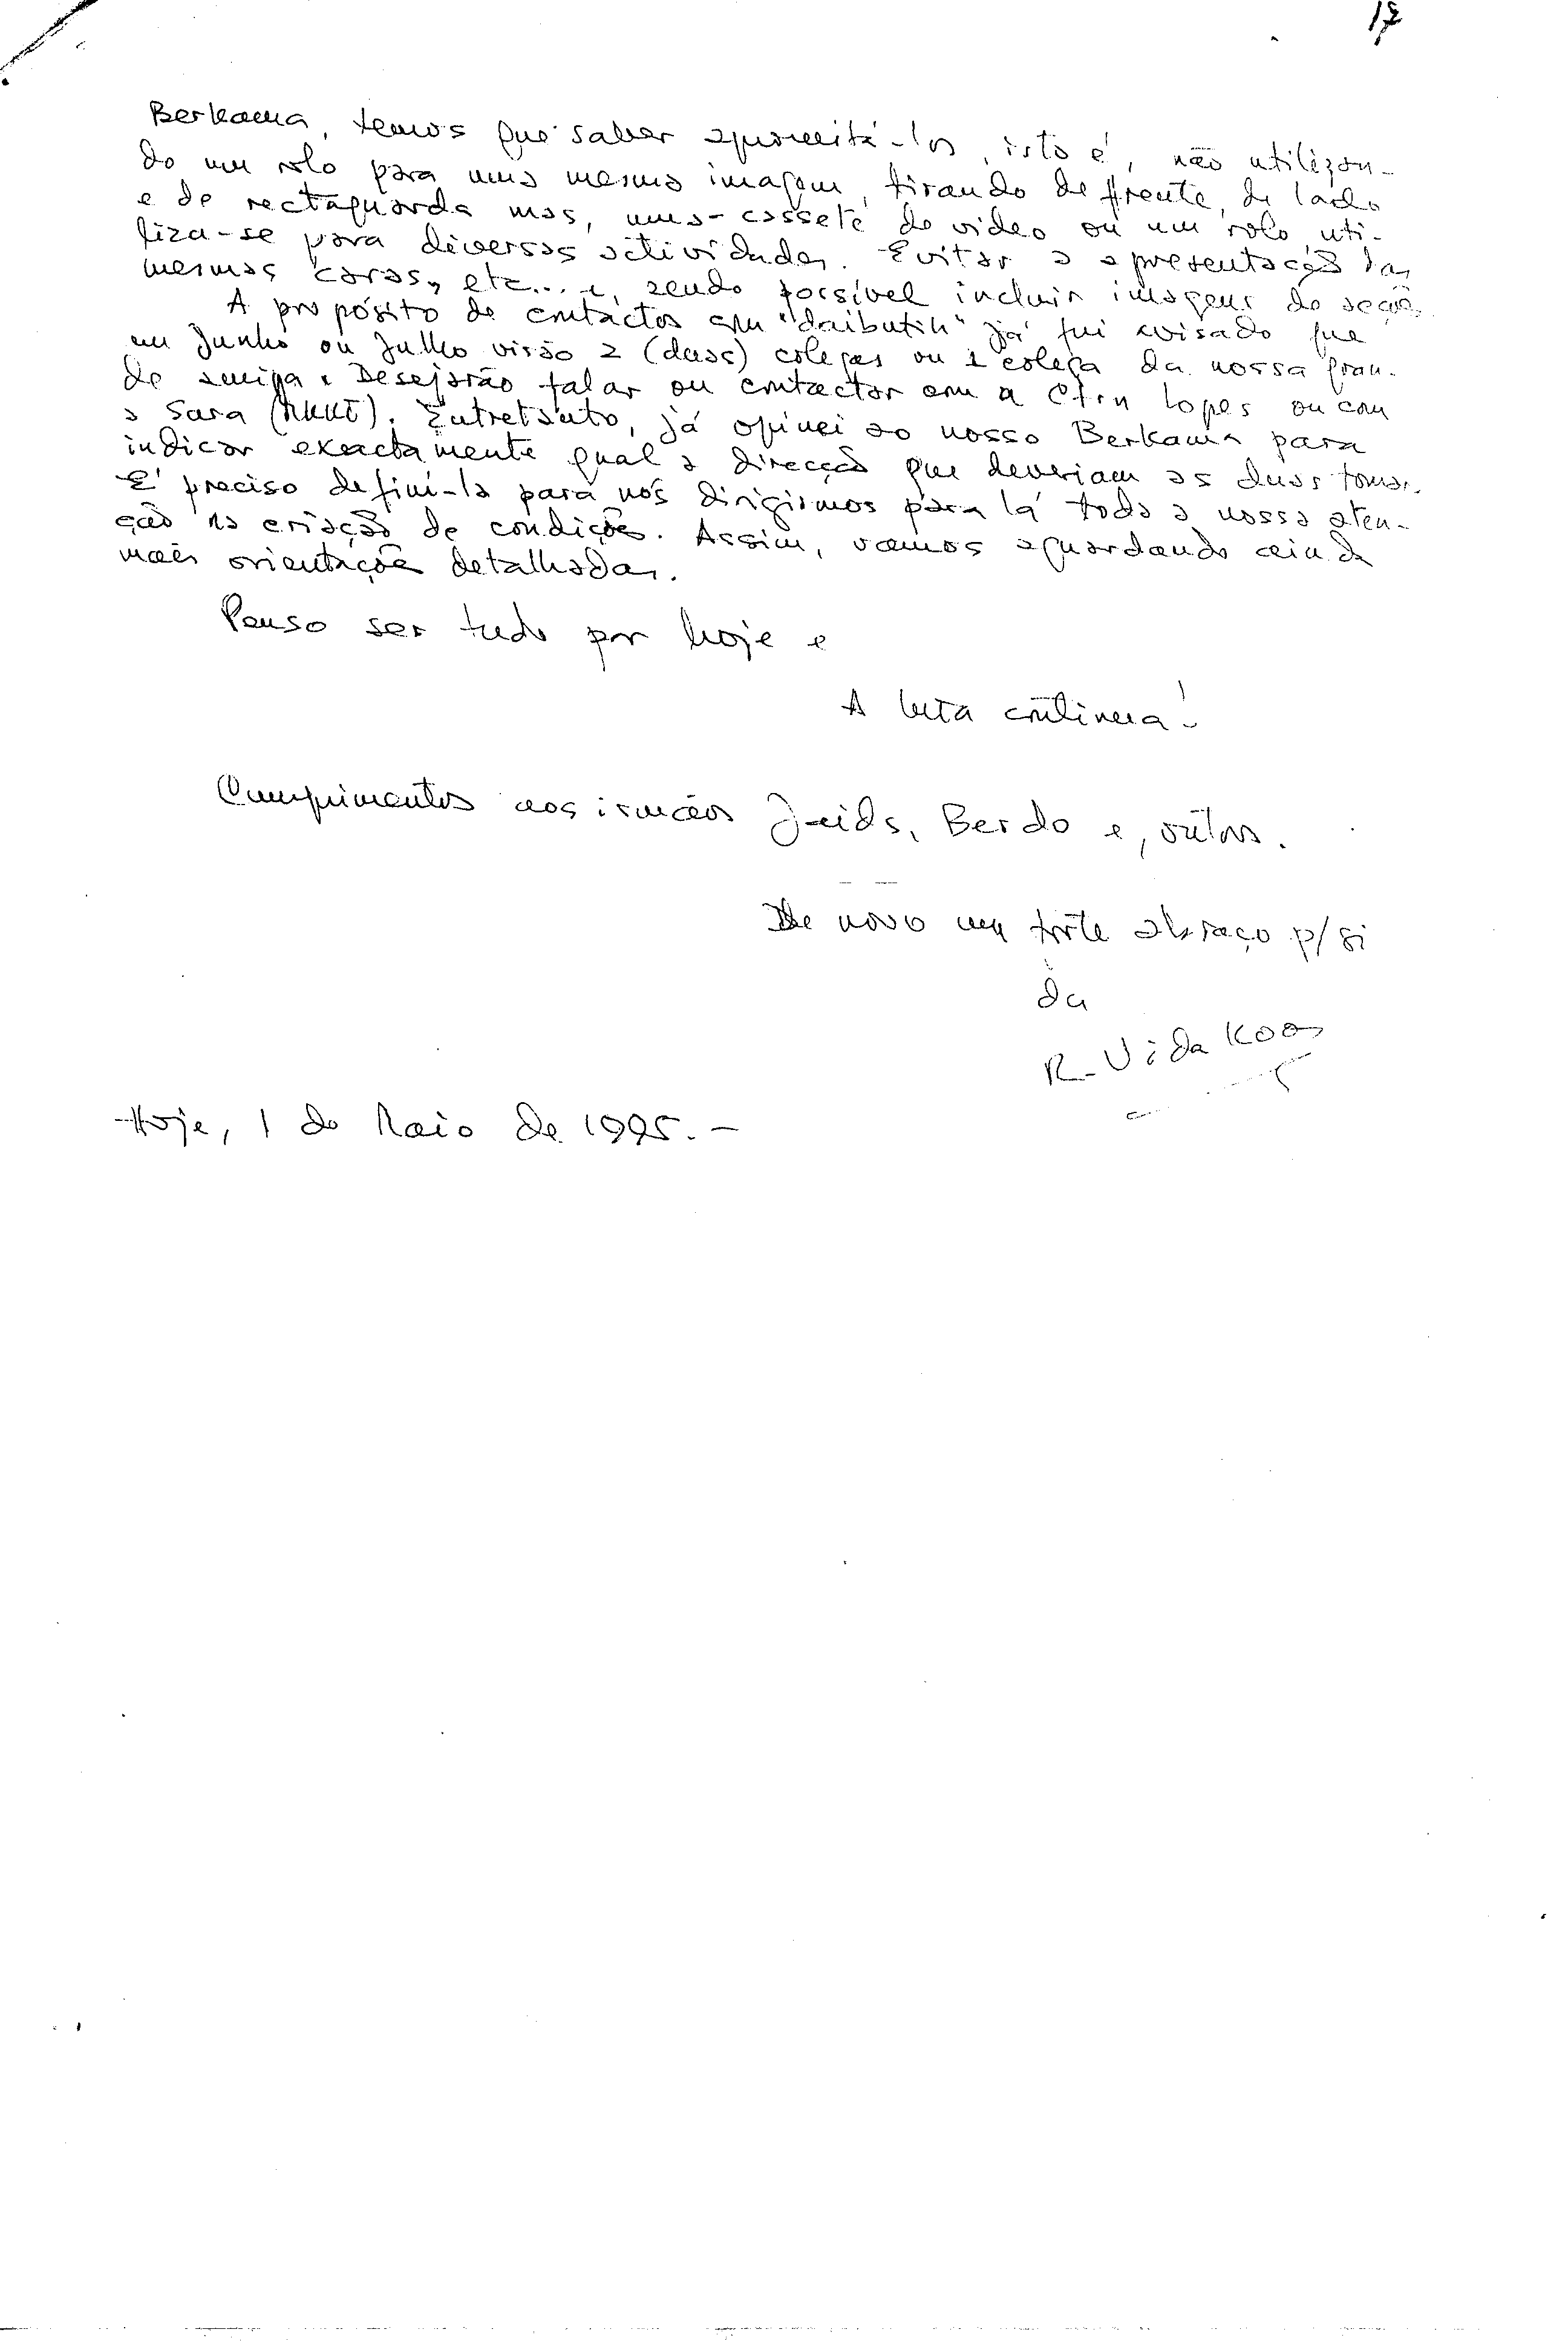 17
Berkama, temos que saber aproveitá-los, isto é, não utilizan-
do um rolo para uma mesma imagem, tirando de frente, de lado
e de rectaguarda mas, uma cassete de video ou um rolo, uti-
liza-se para diversas actividades. Evitar a apresentação das
mesmas caras, etc... e, sendo possível incluir imagens da
A propósito de contactos com "daibutin" já fui avisado que
em Junho ou Julho virão 2 (duas) colegas ou 1 colega da nossa gran-
de amiga. Desejarão falar ou contactar com a Ctrn Lopes ou com
a Sara. Entretanto, já opinei ao nosso Berkama para
indicar exactamente qual a direcção que deveriam as duas tomar.
É preciso defini-la para nós dirigirmos para lá toda a nossa aten-
ção na criação de condições. Assim, vamos aguardando ainda
mais orientações detalhadas.
Penso ser tudo por hoje e
A luta continua!
Cumprimentos aos irmãos Berdo e, outros.
De novo um forte abraço p/ si
da
R- Vida Koos
Hoje, 1 de Maio de 1995.-